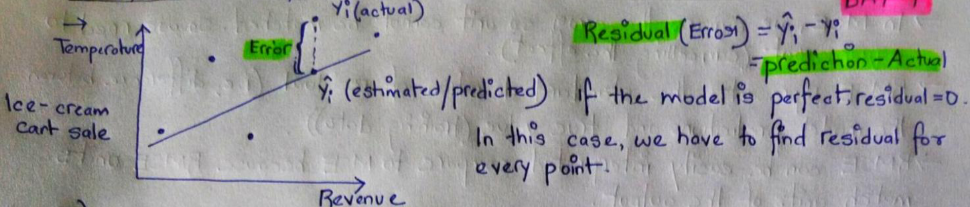 yi (actual)
Temperature
Error
Residual (Error) = ŷi - yi
= prediction - Actual
ŷi (estimated/predicted)
If the model is perfect, residual = 0.
Ice-cream
cart sale
In this case, we have to find residual for
every point.
Revenue